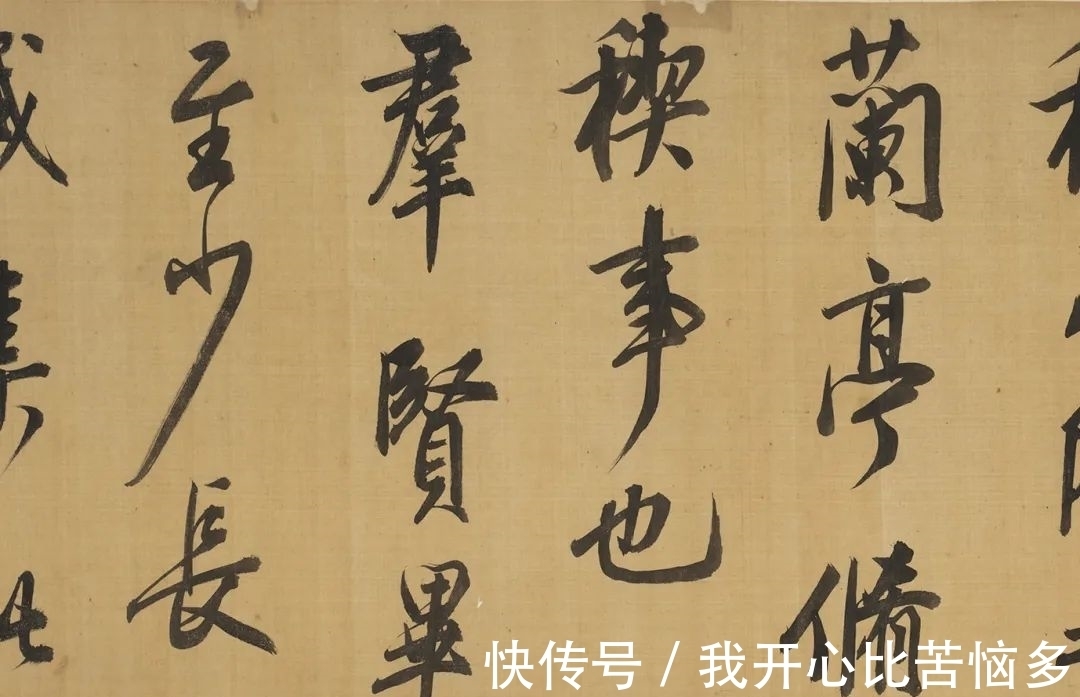 蘭亭脩
稧事也
羣賢畢
至少長
咸集此
快传号 / 我开心比苦恼多